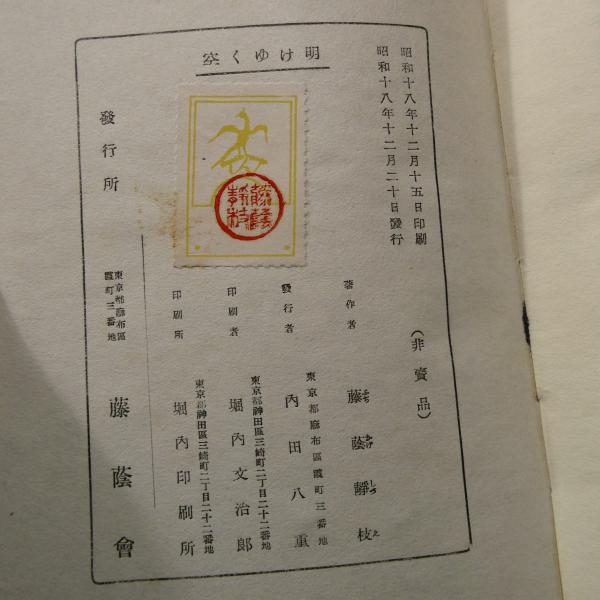 昭和十八年十二月十五日印刷
昭和十八年十二月二十日發行
(非賣品)
明けゆく空
著作者 藤蔭靜枝
ふぢ かげ しづ え
發行者 東京都麻布區霞町三番地
內田八重
印刷者 東京都神田區三崎町二丁目二十二番地
堀內文治郎
印刷所 東京都神田區三崎町二丁目二十二番地
堀內印刷所
發行所 東京都麻布區
霞町三番地
藤蔭會
藤蔭
靜枝